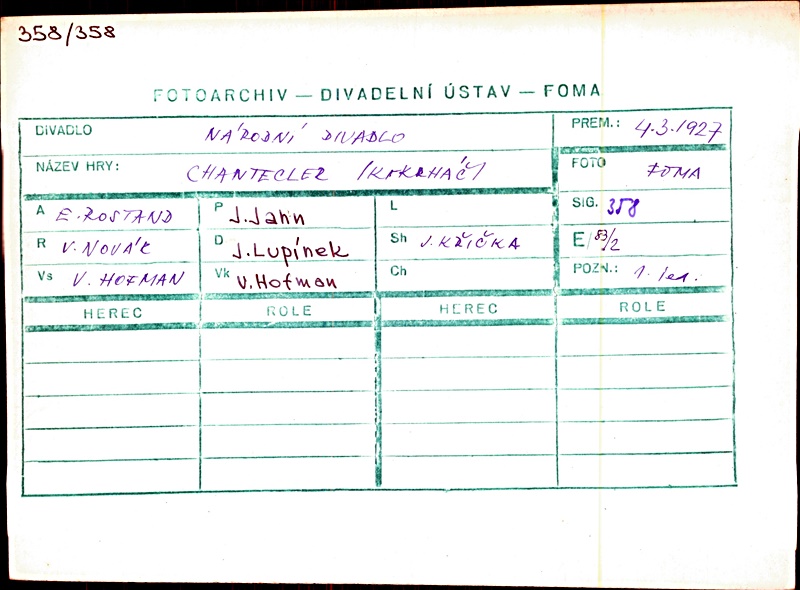 358/358
FOTOARCHIV — DIVADELNÍ ÚSTAV — FOMA
DIVADLO NÁRODNÍ DIVADLO PREM.: 4.3.1927
NÁZEV HRY: CHANTECLER /KOKRHÁČ/ FOTO FOMA
A E. ROSTAND P J. Jahn L SIG. 358
R V. NOVÁK D J. Lupínek Sh J. KŘIČKA E/83/2
Vs V. HOFMAN Vk V. Hofman Ch POZN.: 1.
HEREC ROLE HEREC ROLE